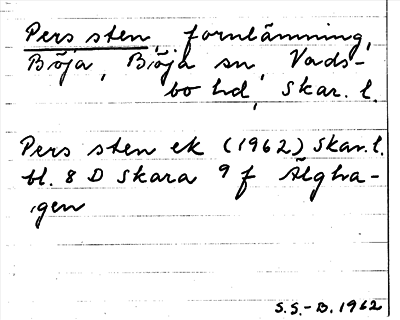 Pers sten, fornlämning,
Böja, Böja sn, Vads-
bo hd, Skar. l.
Pers sten ek (1962) Skar. l.
bl. 8 D Skara 9 f Älgha-
gen
S.S.-B. 1962